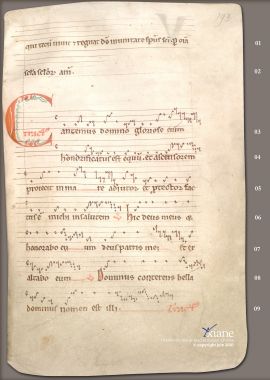 193
qui tecum uiuit & regnat do in unitate sps sci p oia
scla sclor am.
Tract
Cantemus domino gloriose enim
honorificatus est equu et ascensorem
proiecit in ma re adiutor et protector fac
tus e michi in salutem Hic deus meus &
honorabo eu um deus patris mei et ex
altabo eum Dominus conterens bella
dominus nomen est illi. Tract
01
02
03
04
05
06
07
08
09
© copyright July 2020